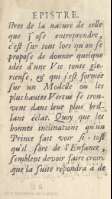 EPISTRE.
stres de la nature de celle
que j'ose entreprendre,
c'est sur tout lors qu'on se
propose de donner quelque
idée d'une Vie toute glo-
rieuse, & qui s'est formée
sur un Modelle où les
plus hautes Vertus se trou-
vent dans leur plus bril-
lant éclat. Quoy que les
bonnes inclinations qu'un
Prince fait voir, si-tost
qu'il sort de l'Enfance,
semblent devoir faire croire
que la suite répondra à de